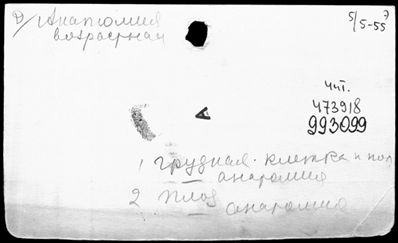 Анатомия
возрастная
5/5-55
чит.
473918
993099
1 грудная клетка и пол
анатомия
2 плод
анатомия